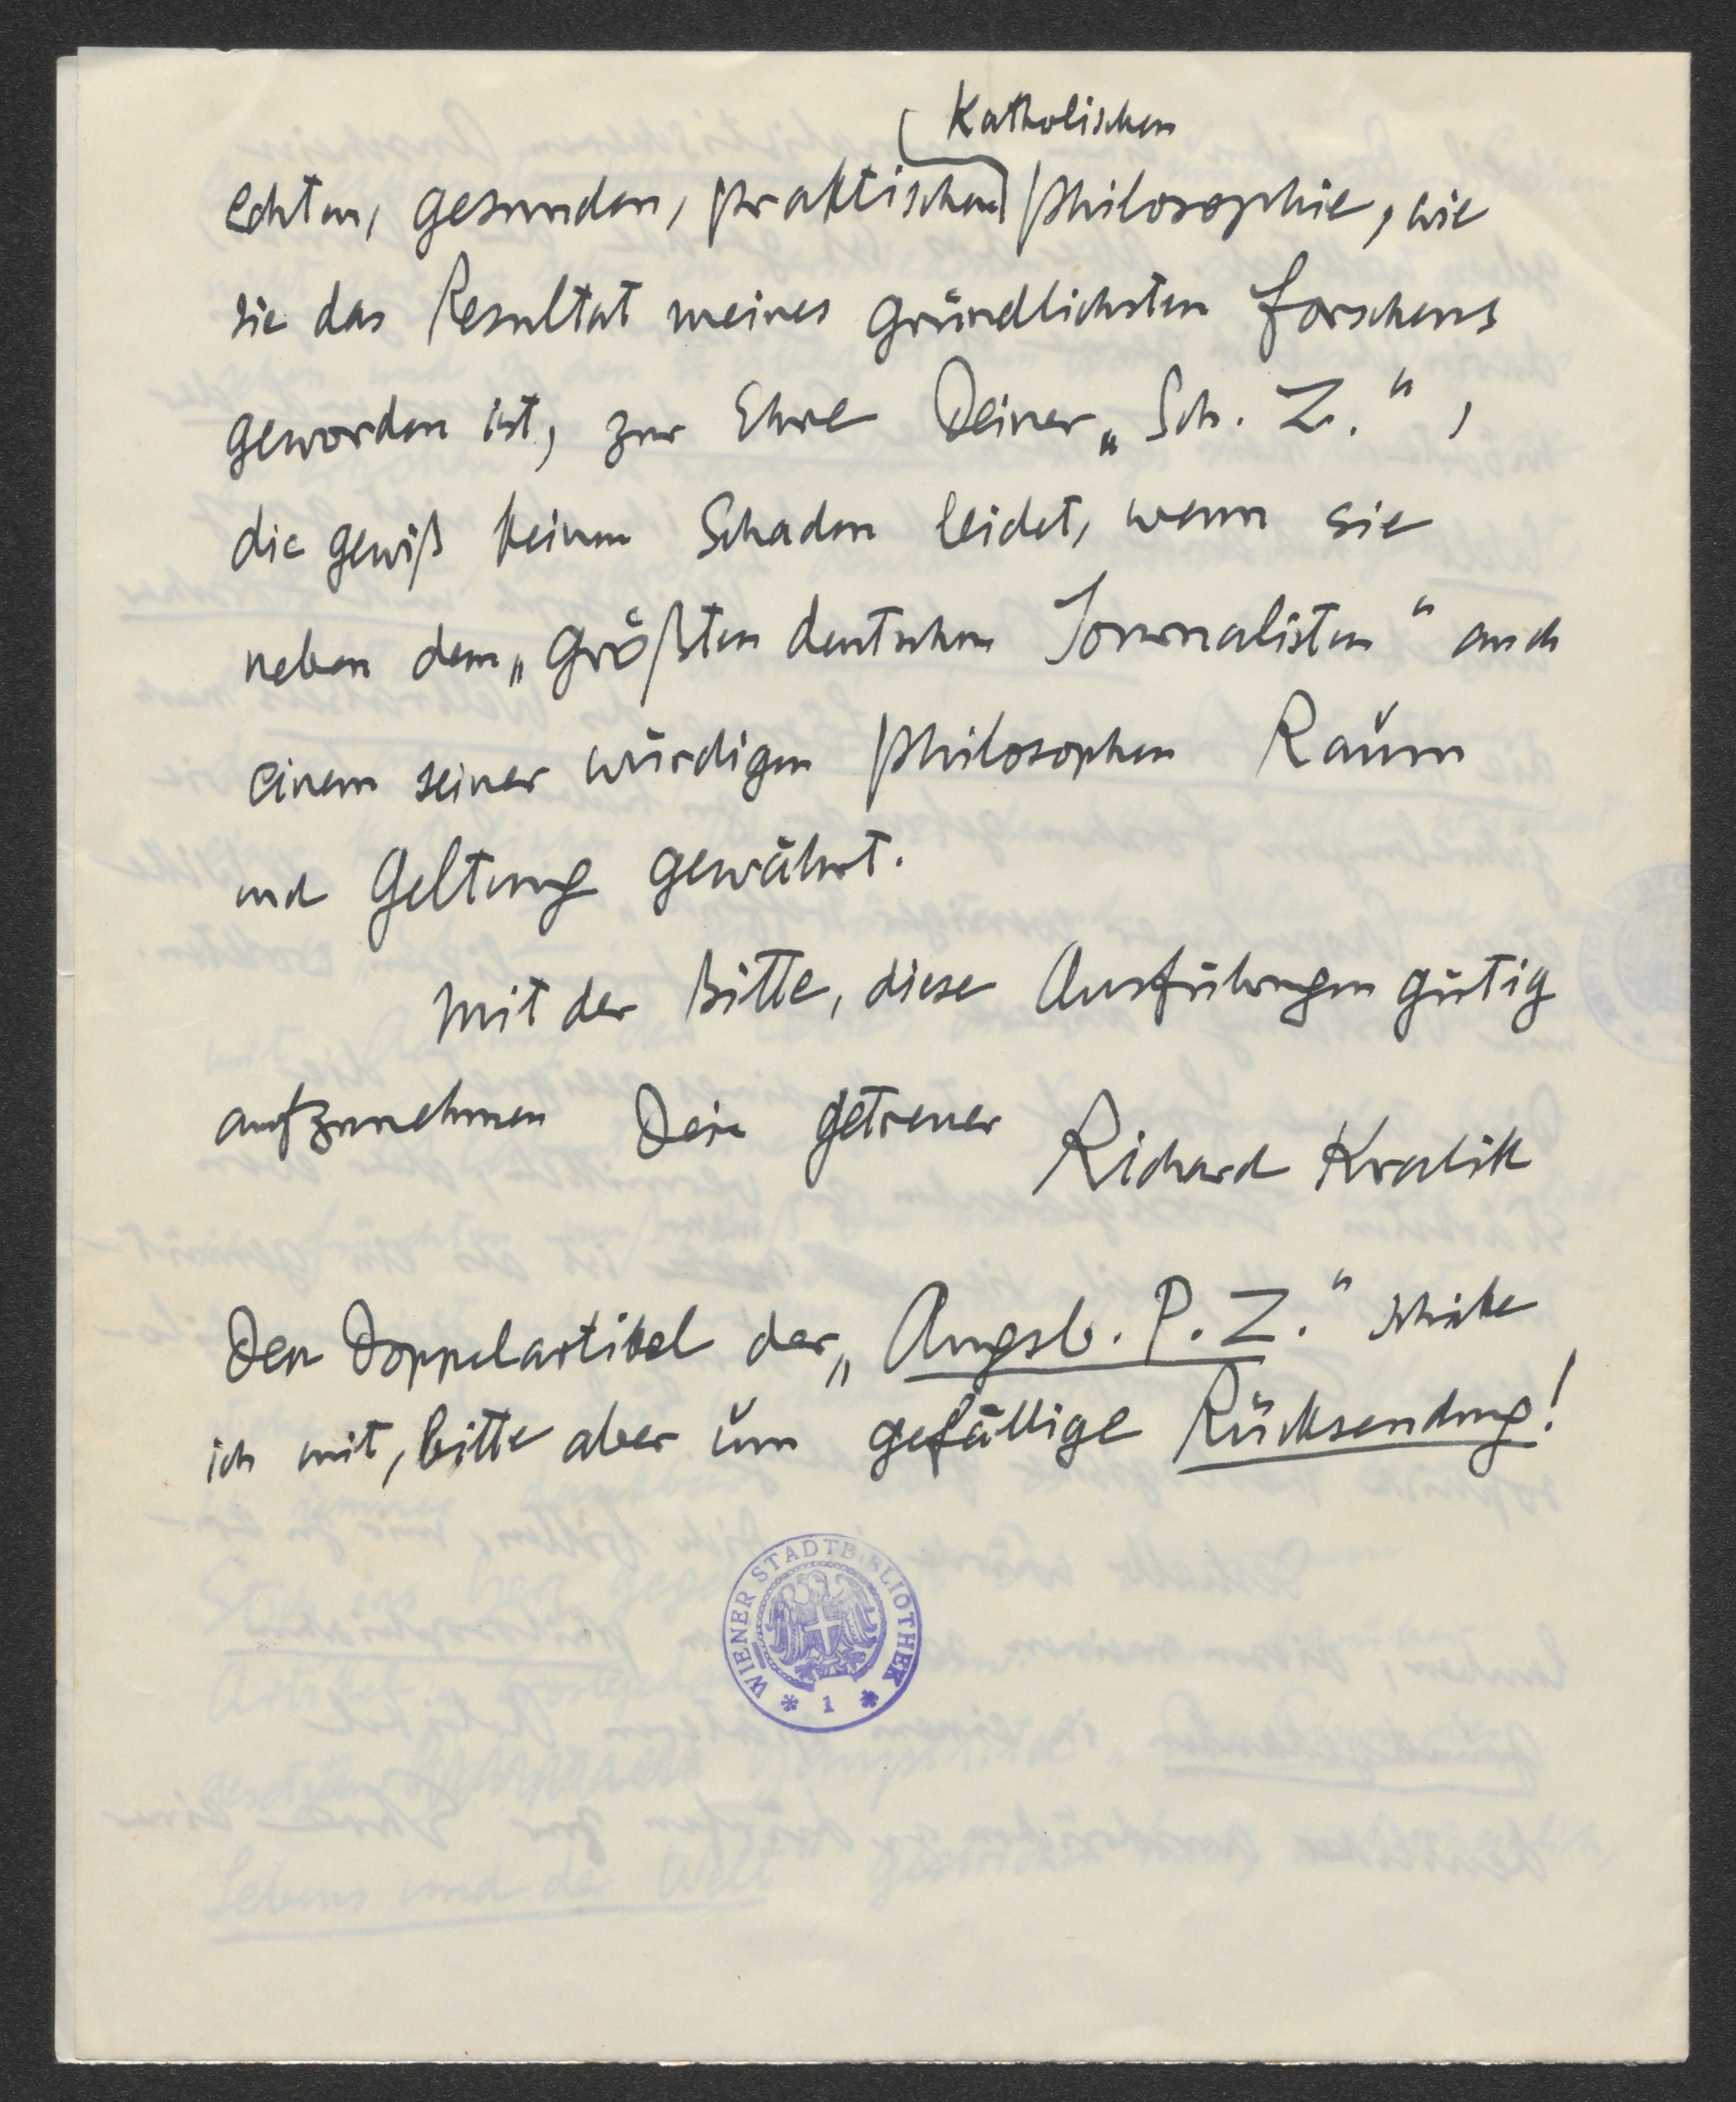 Katholischen
echten, gesunden, praktischen Philosophie, wie
sie das Resultat meines gründlichsten Forschens
geworden ist, zur Ehre Deiner „Sch. Z.“,
die gewiß keinen Schaden leidet, wenn sie
neben dem „größten deutschen Journalisten“ auch
einem seiner würdigen Philosophen Raum
und Geltung gewährt.
Mit der Bitte, diese Ausführungen gütig
aufzunehmen Dein getreuer Richard Kralik
Den Doppelartikel der „Augsb. P. Z.“ schicke
ich mit, bitte aber um gefällige Rücksendung!
WIENER STADTBIBLIOTHEK
* 1 *
Lebens und der Welt